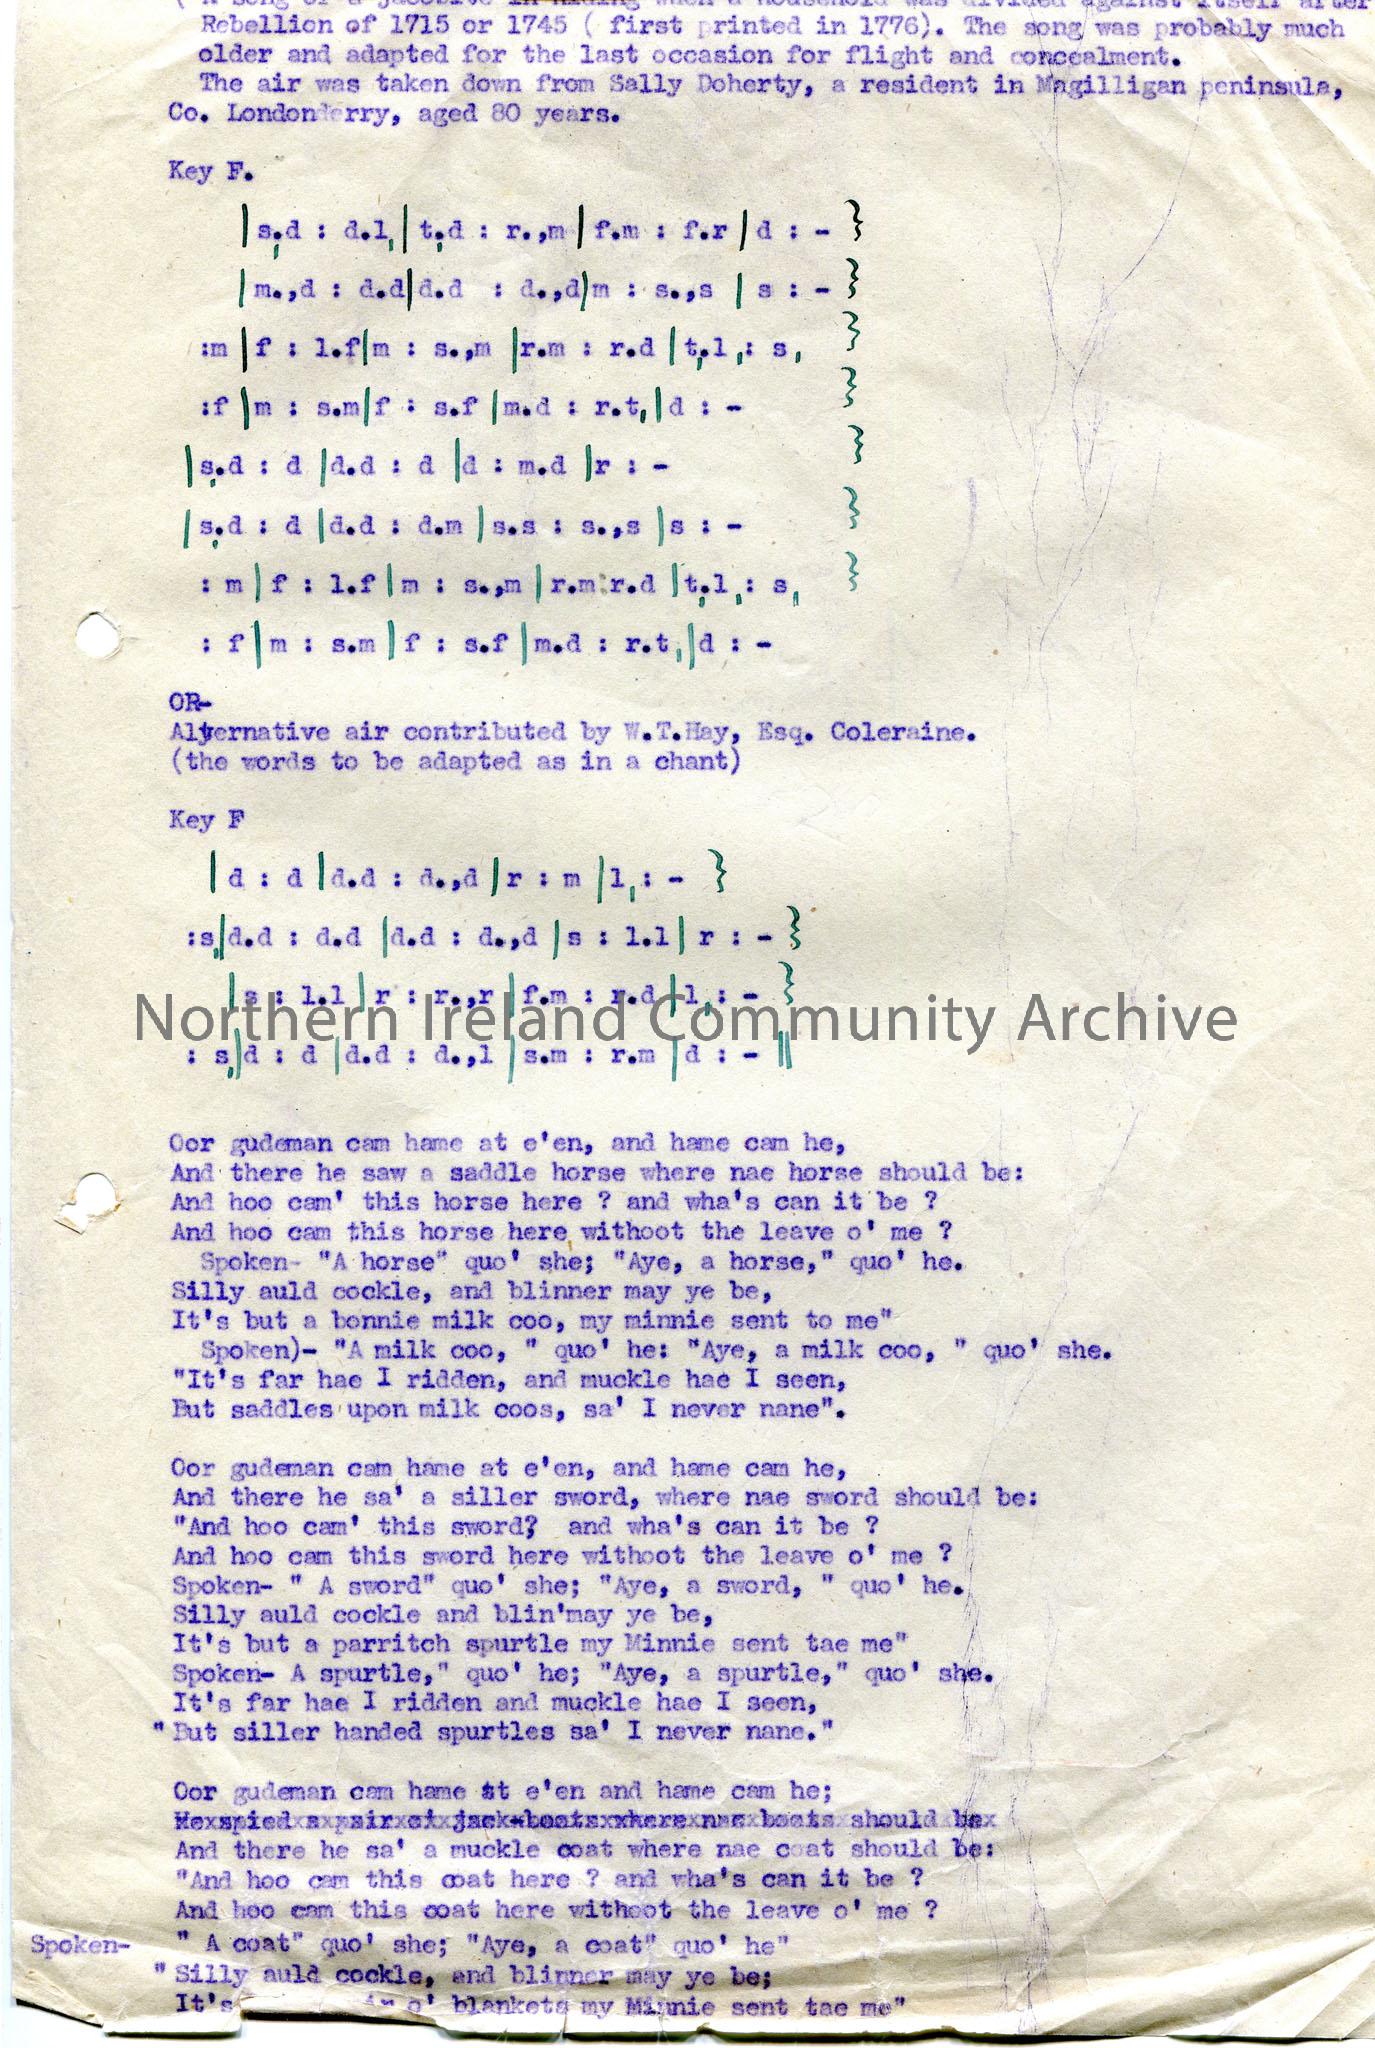 ( A song of a Jacobite in hiding when a household was divided against itself after
Rebellion of 1715 or 1745 ( first printed in 1776). The song was probably much
older and adapted for the last occasion for flight and concealment.
The air was taken down from Sally Doherty, a resident in Magilligan peninsula,
Co. Londonderry, aged 80 years.
Key F.
|s,.d : d.l,|t,.d : r.,m|f.m : f.r|d : - }
|m.,d : d.d|d.d : d.,d|m : s.,s |s : - }
:m|f : l.f|m : s.,m |r.m : r.d |t,.l,: s, }
:f|m : s.m|f : s.f |m.d : r.t,|d : - }
|s,.d : d |d.d : d |d : m.d |r : - }
|s,.d : d |d.d : d.m |s.s : s.,s |s : - }
: m|f : l.f|m : s.,m |r.m:r.d |t,.l,: s, }
: f|m : s.m|f : s.f |m.d : r.t,|d : -
OR-
Alternative air contributed by W.T.Hay, Esq. Coleraine.
(the words to be adapted as in a chant)
Key F
|d : d |d.d : d.,d|r : m |l,: - }
:s,|d.d : d.d |d.d : d.,d |s : l.l| r : - }
|s : l.l |r : r.,r |f.m : r.d |l,: - }
: s,|d : d |d.d : d.,l |s.m : r.m |d : - ||
Northern Ireland Community Archive
Oor gudeman cam hame at e'en, and hame cam he,
And there he saw a saddle horse where nae horse should be:
And hoo cam' this horse here ? and wha's can it be ?
And hoo cam this horse here withoot the leave o' me ?
Spoken- "A horse" quo' she; "Aye, a horse," quo' he.
Silly auld cockle, and blinner may ye be,
It's but a bonnie milk coo, my minnie sent to me"
Spoken)- "A milk coo, " quo' he: "Aye, a milk coo, " quo' she.
"It's far hae I ridden, and muckle hae I seen,
But saddles upon milk coos, sa' I never nane".
Oor gudeman cam hame at e'en, and hame cam he,
And there he sa' a siller sword, where nae sword should be:
"And hoo cam' this sword? and wha's can it be ?
And hoo cam this sword here withoot the leave o' me ?
Spoken- " A sword" quo' she; "Aye, a sword, " quo' he.
Silly auld cockle and blin'may ye be,
It's but a parritch spurtle my Minnie sent tae me"
Spoken- A spurtle," quo' he; "Aye, a spurtle," quo' she.
It's far hae I ridden and muckle hae I seen,
"But siller handed spurtles sa' I never nane."
Oor gudeman cam hame at e'en and hame cam he;
He spied a pair of jack-boots where nae boots should be
And there he sa' a muckle coat where nae coat should be:
"And hoo cam this coat here ? and wha's can it be ?
And hoo cam this coat here withoot the leave o' me ?
Spoken- " A coat" quo' she; "Aye, a coat" quo' he"
"Silly auld cockle, and blinner may ye be;
It's o' blankets my Minnie sent tae me"